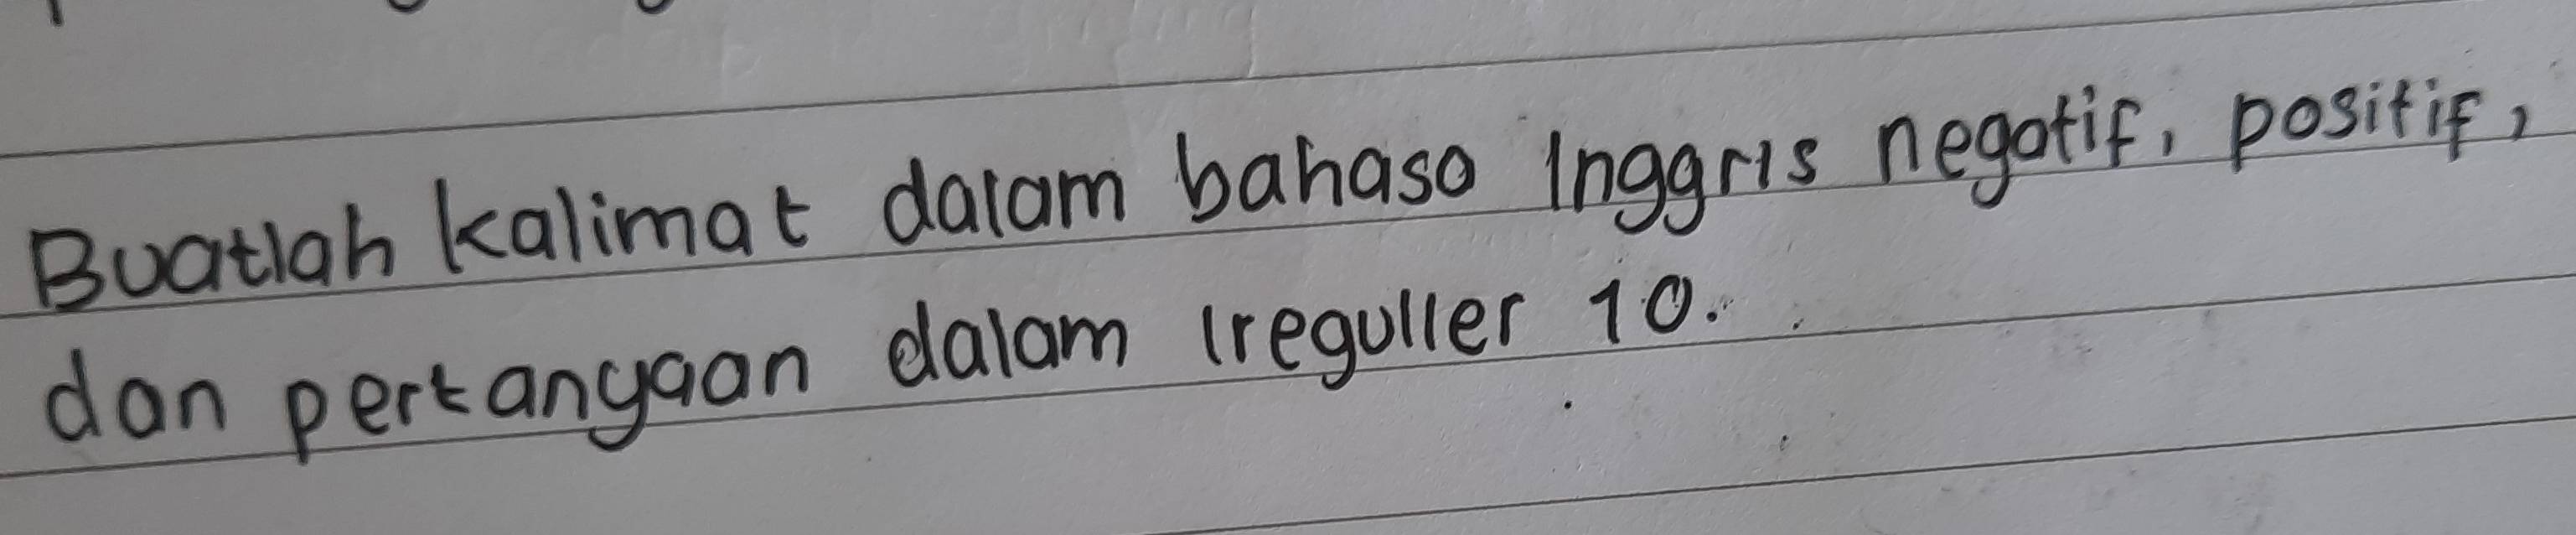 Buatlah kalimat dalam bahasa Inggris negatif, positif,
dan pertanyaan dalam Ireguller 10.